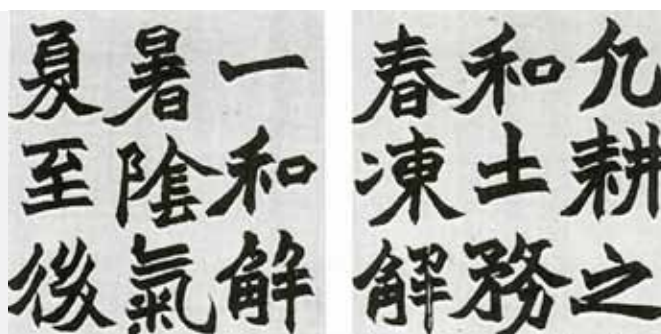 凡耕之
和土務
春凍解
一和解
暑陰氣
夏至後